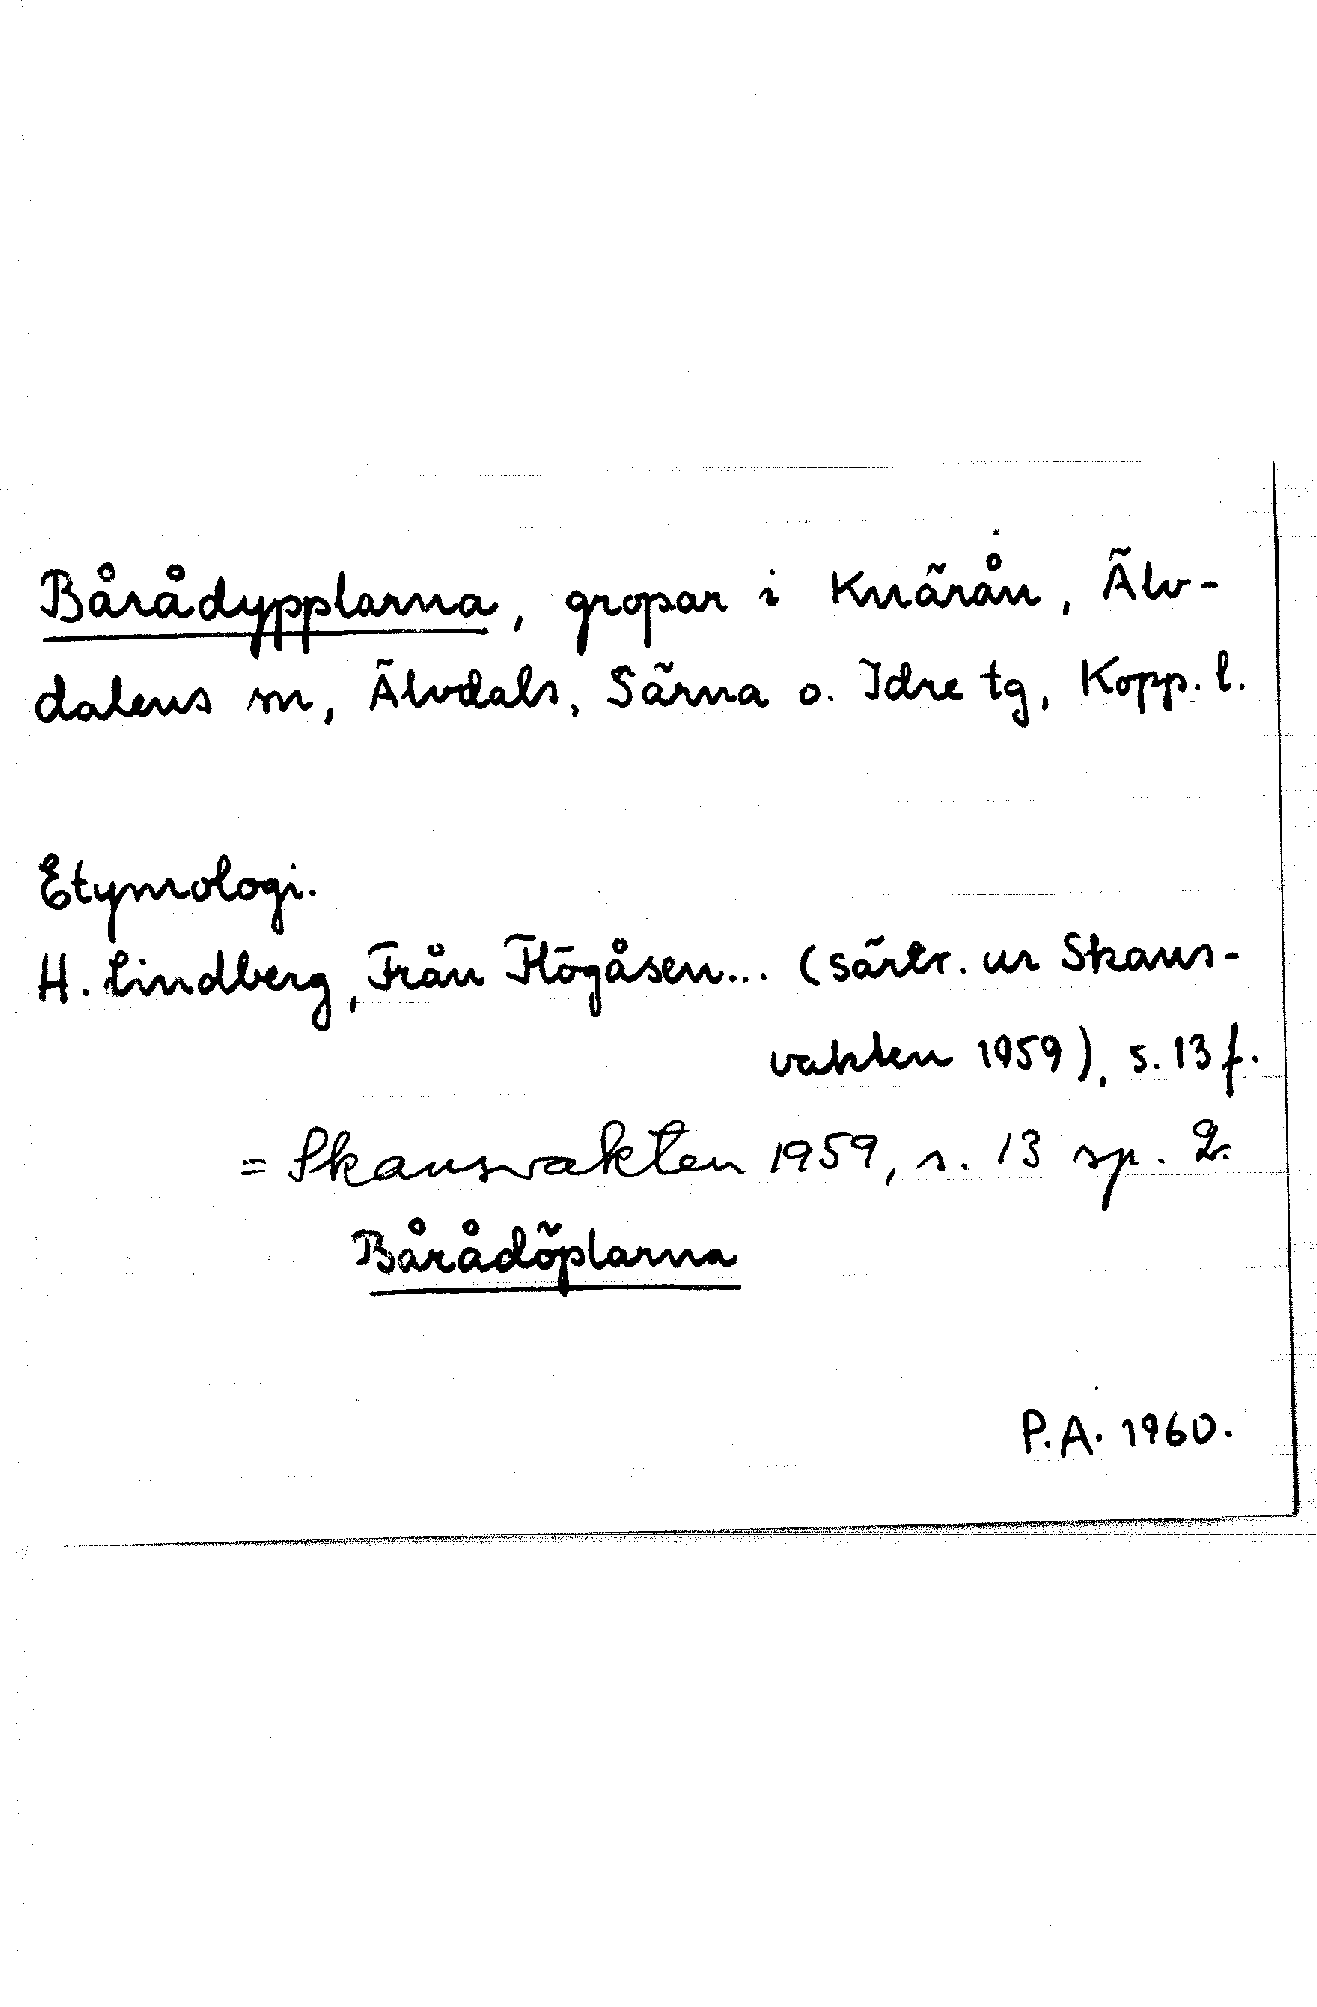 Bårådypplarna, gropar i Knärån, Älv-
dalens sn, Älvdals, Särna o. Idre tg, Kopp. l.
Etymologi.
H. Lindberg, Från Högåsen... (särtr. ur Skans-
vakten 1959), s. 13 f.
= Skansvakten 1959, s. 13 sp. 2.
Bårådöplarna
P.A. 1960.